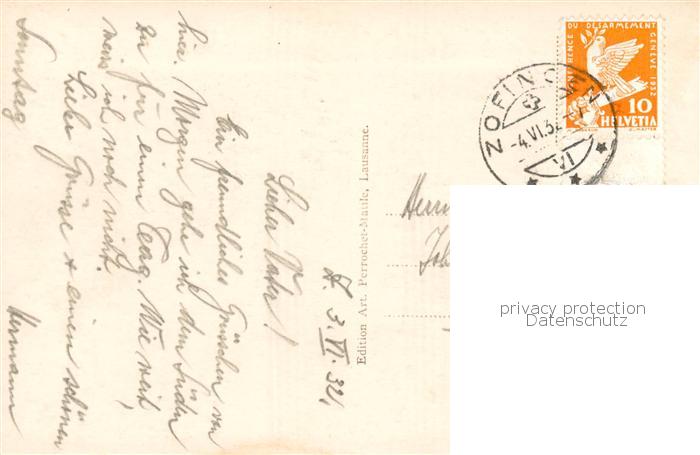 3. VI. 32.
Lieber Vater!
Ein freundliches Grüsschen von
hier. Morgen gehe ich dem Süden
zu für einen Tag. Wie weit,
weiss ich noch nicht.
Liebe Grüsse + einen schönen
Sonntag Hermann
Edition Art. Perrochet-Matile, Lausanne.
CONFERENCE DU DESARMEMENT GENEVE 1932
10
HELVETIA
ZOFINGEN
-4.VI.32
VI
Herrn
privacy protection
Datenschutz